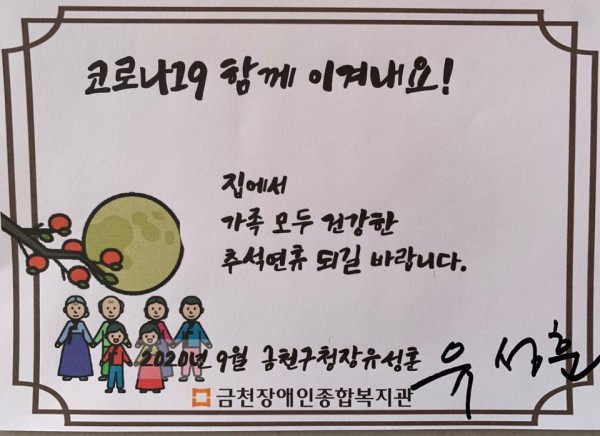 코로나19 함께 이겨내요!
집에서
가족 모두 건강한
추석연휴 되길 바랍니다.
2020년 9월 금천구청장 유성훈 유성훈
금천장애인종합복지관